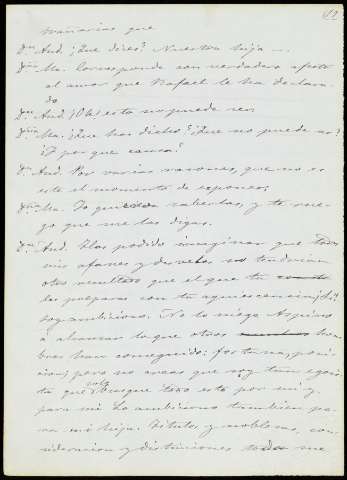 11
trañarias que
Dn. And. ¿Que dices? Nuestra hija ....
Dña. Ma. Corresponde con verdadero afecto
el amor que Rafael le ha declara-
do
Dn. And. ¡Oh! esto no puede ser
Dña. Ma. ¿Que has dicho? ¿Que no puede ser?
¿Y por que causa?
Dn. And. Por varias razones, que no es
este el momento de esponer;
Dña. Ma. Yo quiero saberlas, y te rue-
go que me las digas.
Dn. And. ¿Has podido imaginar que todos
mis afanes y desvelos no tendrian
otro resultado que el que tu
les preparas con tu aquiescencia? ¡Si!
soy ambicioso. No lo niego Aspiro
á alcanzar lo que otros hom-
bres han conseguido: fortuna, posi-
cion; pero no creas que soy tan egois-
ta que solo busque todo esto por mi y
para mi. Lo ambiciono tambien pa-
ra mi hija. Titulos y nobleza, con-
sideracion y distinciones todo me